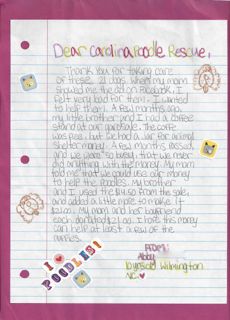 Dear Carolina Poodle Rescue,
Thank you for taking care
of these 21 dogs. When my mom
showed me the ad on Facebook, I
felt very bad for them. I wanted
to help them. A few months ago
my little brother and I had a coffee
stand at our yardsale. The coffee
was free, but we had a jar for animal
shelter money. A few months passed,
and we were so busy, that we never
did anything with the money. My mom
told me that we could use our money
to help the poodles. My brother
and I used the from the sale,
and added a little more to make it
$21.00. My mom and her boyfriend
each donated $21.00. I hope this money
can help at least a few of the
puppies.
FROM:
Abby
Wilmington
NC
I
POODLES!